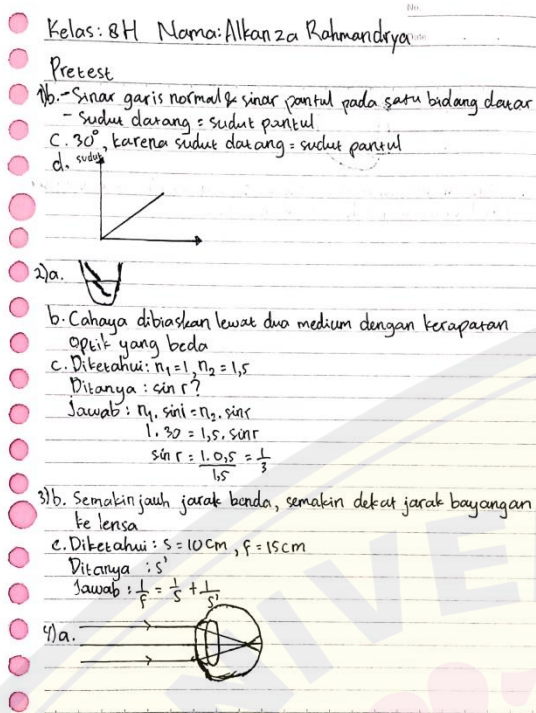 No
Date
Kelas: 8H Nama: Alkanza Rahmandrya
Pretest
1)b. - Sinar garis normal & sinar pantul pada satu bidang datar
- sudut datang = sudut pantul
C. 30°, karena sudut datang = sudut pantul
d. sudut
2)a.
b. Cahaya dibiaskan lewat dua medium dengan kerapatan
optik yang beda
c. Diketahui: n₁ = 1, n₂ = 1,5
Ditanya : sin r?
Jawab : n₁. sin i = n₂. sin r
1. 30 = 1,5. sin r
sin r = 1. 0,5 / 1,5 = 1/3
3)b. Semakin jauh jarak benda, semakin dekat jarak bayangan
ke lensa
c. Diketahui : s = 10 cm, f = 15 cm
Ditanya : s'
Jawab : 1/f = 1/s + 1/s'
4)a.
NIVE